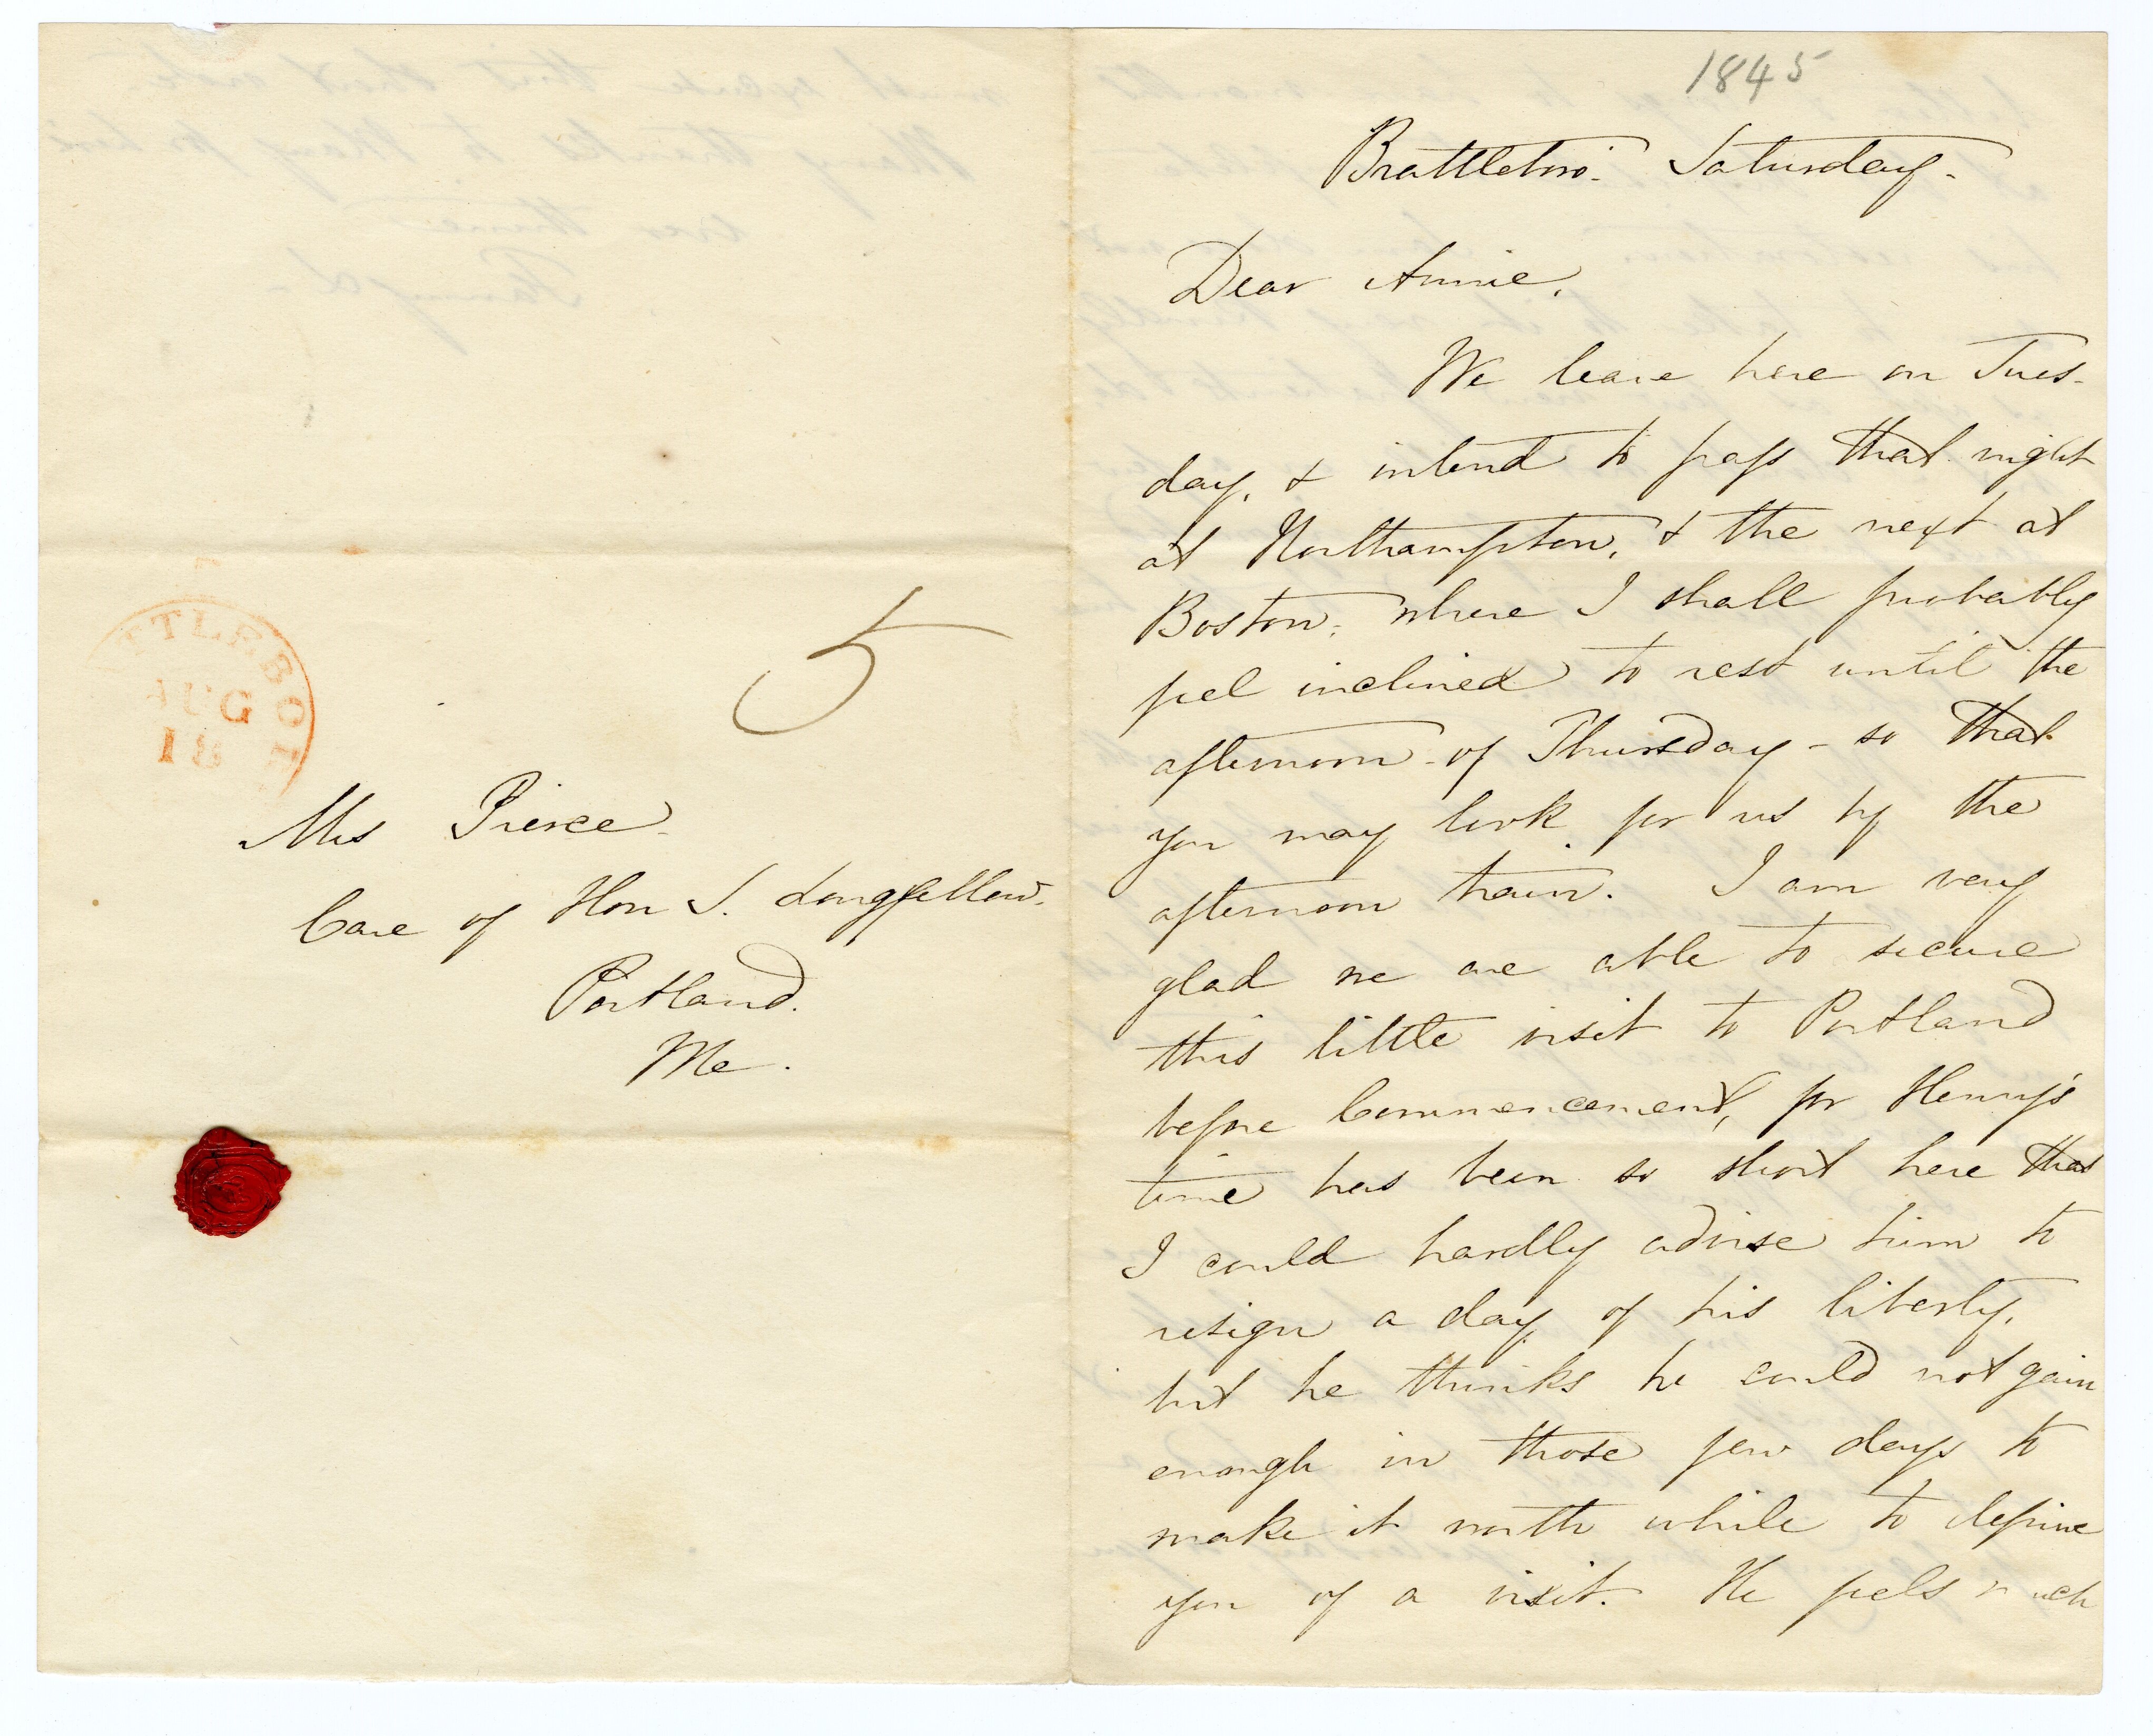 TTLEBO
AUG
18
5
Mrs Pierce
Care of Hon S. Longfellow.
Portland.
Me.
1845
Brattleboro'. Saturday.
Dear Annie,
We leave here on Tues-
day, & intend to pass that night
at Northampton, & the next at
Boston, where I shall probably
feel inclined to rest until the
afternoon of Thursday - so that
you may look for us by the
afternoon train. I am very
glad we are able to secure
this little visit to Portland
before Commencement, for Henry's
time has been so short here that
I could hardly advise him to
resign a day of his liberty,
but he thinks he could not gain
enough in those few days to
make it worth while to deprive
you of a visit. He feels much